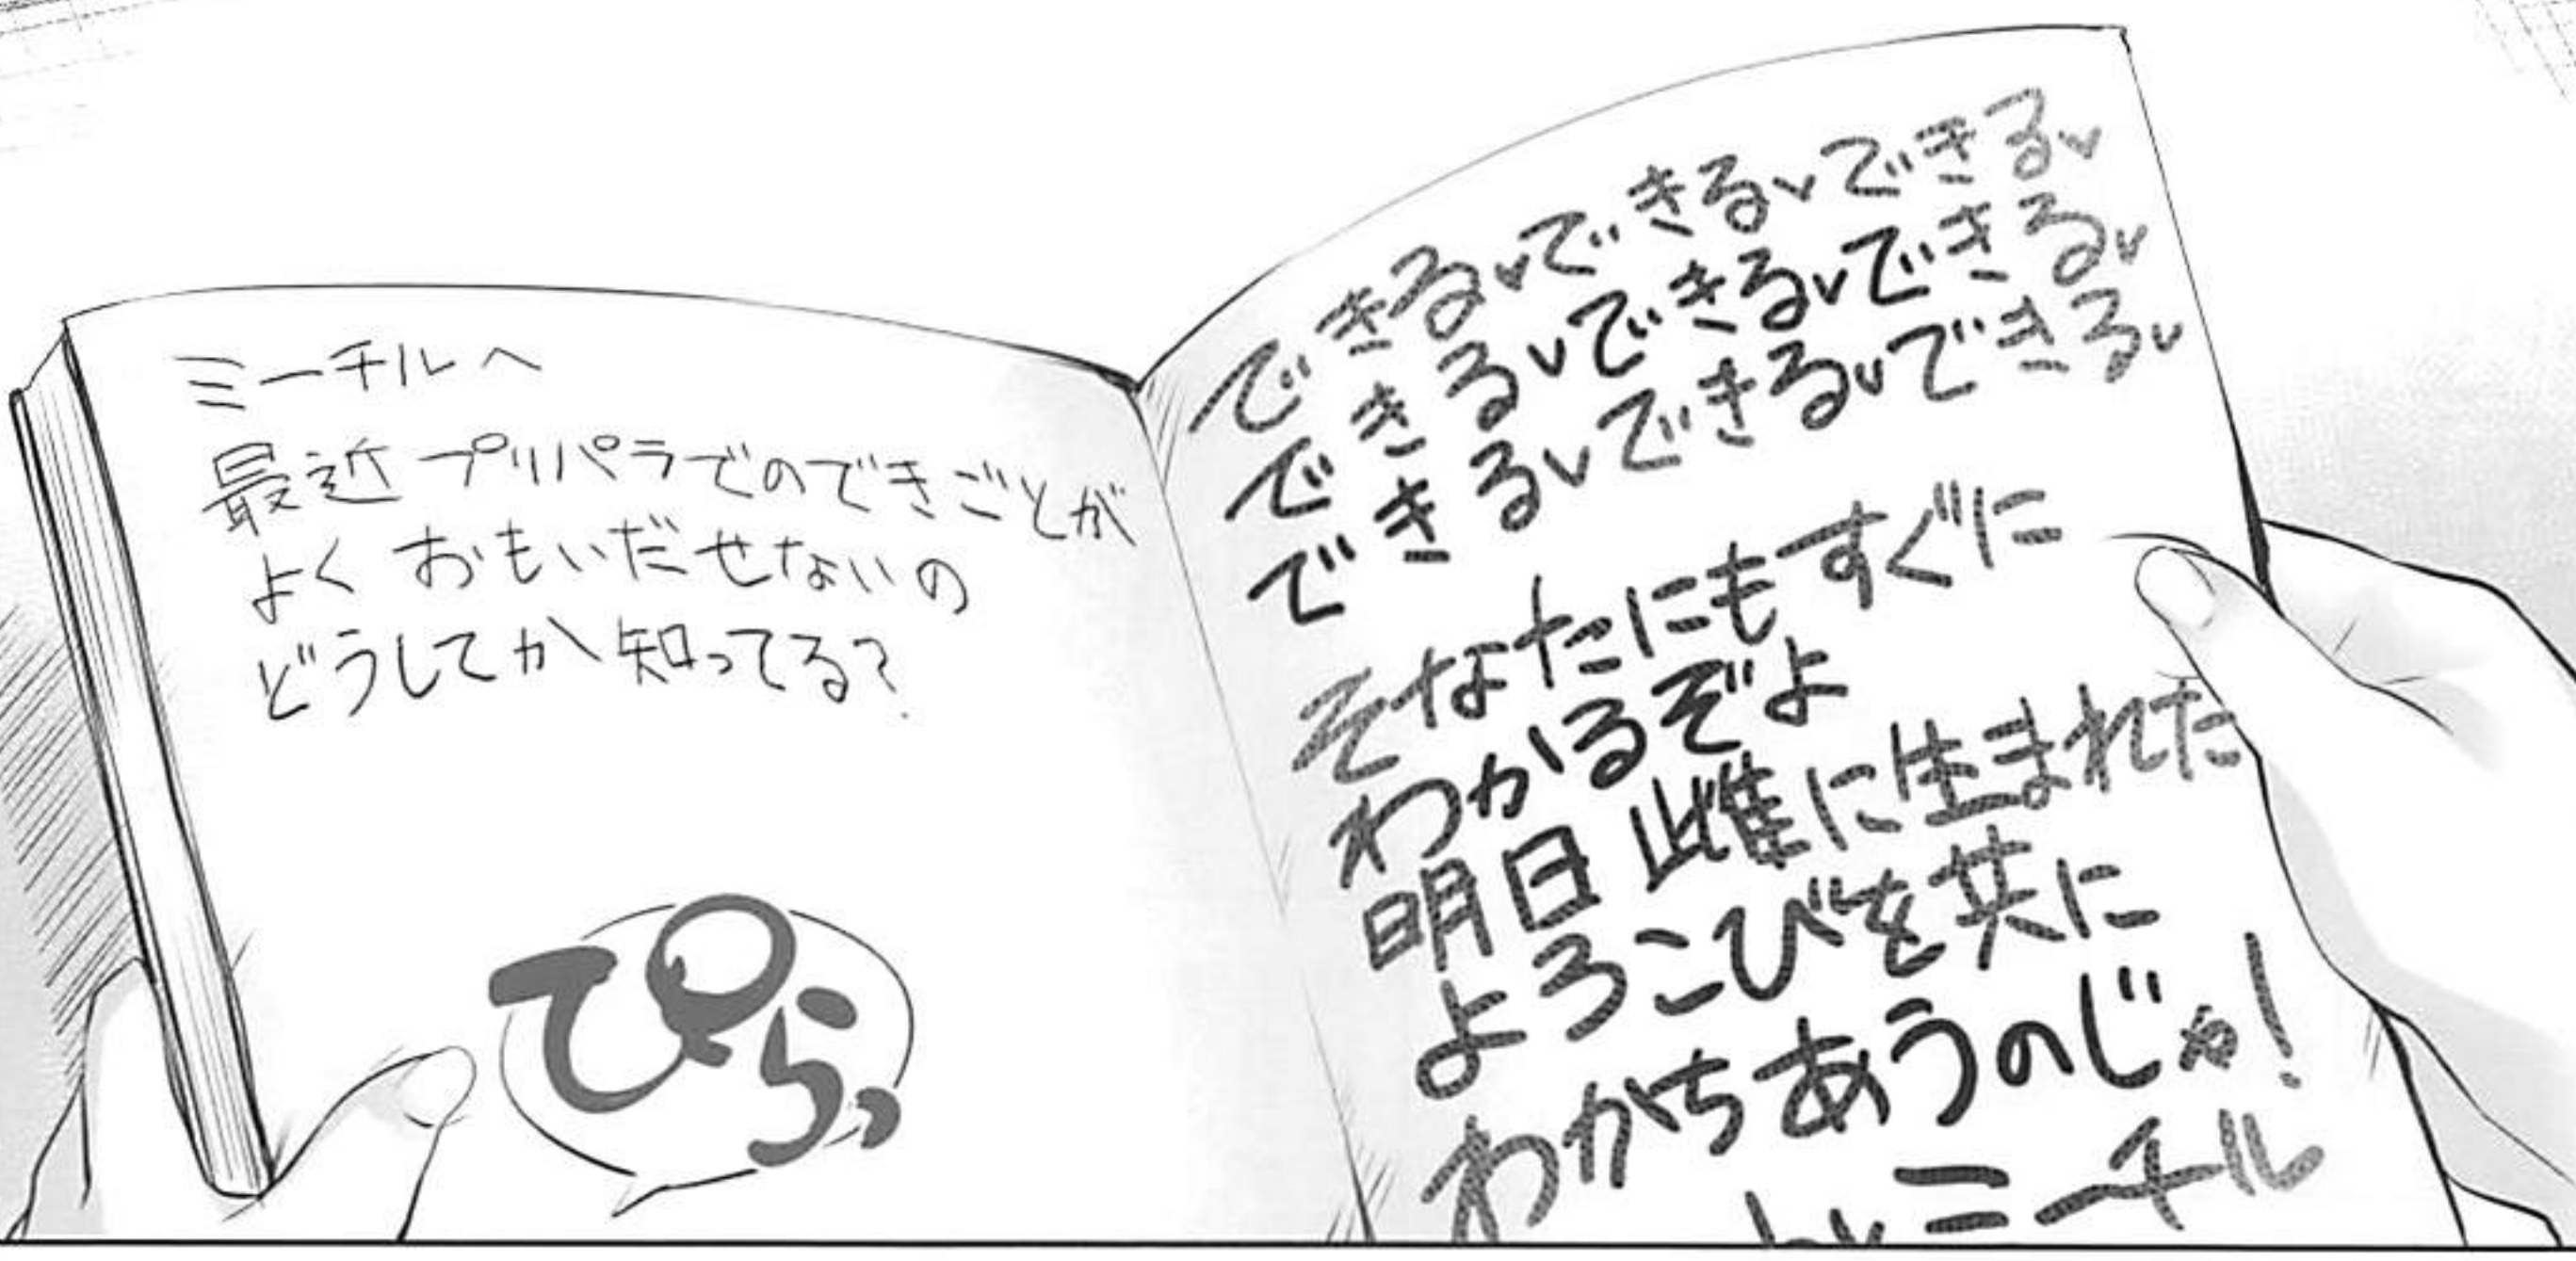 ミーチルへ
最近プリパラでのできごとが
よくおもいだせないの
どうしてか知ってる?
ぴらっ
できるvできるvできるv
できるvできるvできるv
できるvできるvできるv
そなたにもすぐに
わかるぞよ
明日雌に生まれた
よろこびを共に
わかちあうのじゃ!
by ミーチル